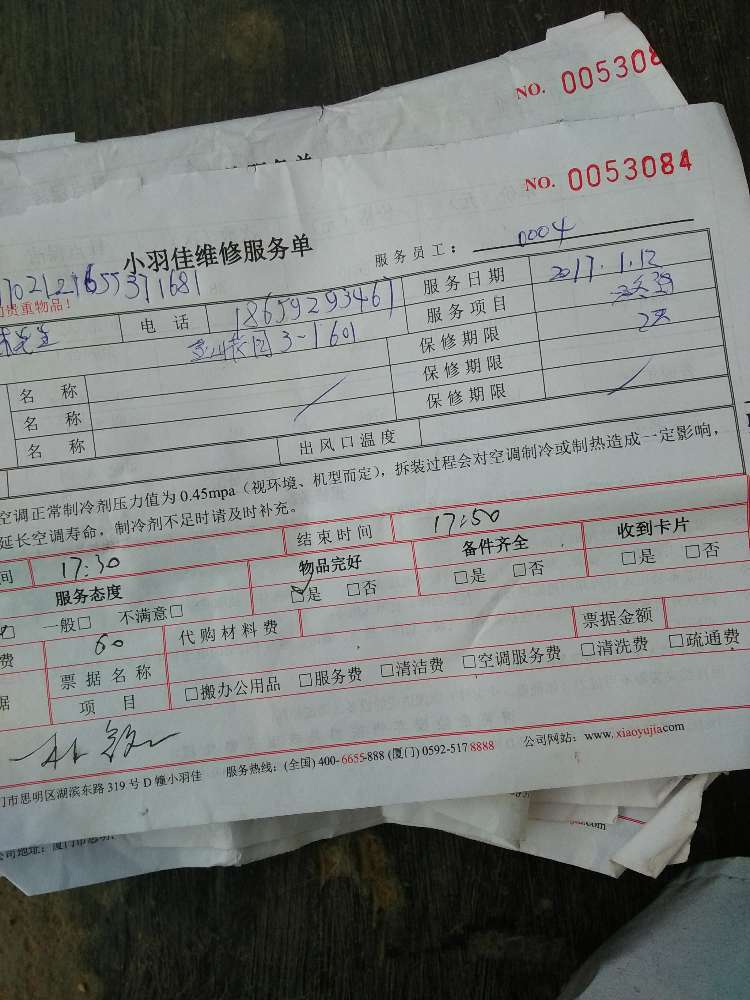 NO. 005308
NO. 0053084
小羽佳维修服务单
服务员工： 0004
贵重物品！
电话 18659293467 服务日期 2017.1.12
3-1601 服务项目
名称 保修期限 2天
名称 保修期限
名称 保修期限
出风口温度
空调正常制冷剂压力值为0.45mpa（视环境、机型而定），拆装过程会对空调制冷或制热造成一定影响，
延长空调寿命，制冷剂不足时请及时补充。
间 17:30 结束时间 17:50
服务态度 物品完好 备件齐全 收到卡片
一般□ 不满意□ □是 □否 □是 □否 □是 □否
费 60 代购材料费 票据金额
据 票据名称
项目 □搬办公用品 □服务费 □清洁费 □空调服务费 □清洗费 □疏通费
门市思明区湖滨东路319号D幢小羽佳 服务热线：(全国) 400-6655-888 (厦门) 0592-517 8888 公司网站：www.xiaoyujia.com
公司地址：厦门市思明